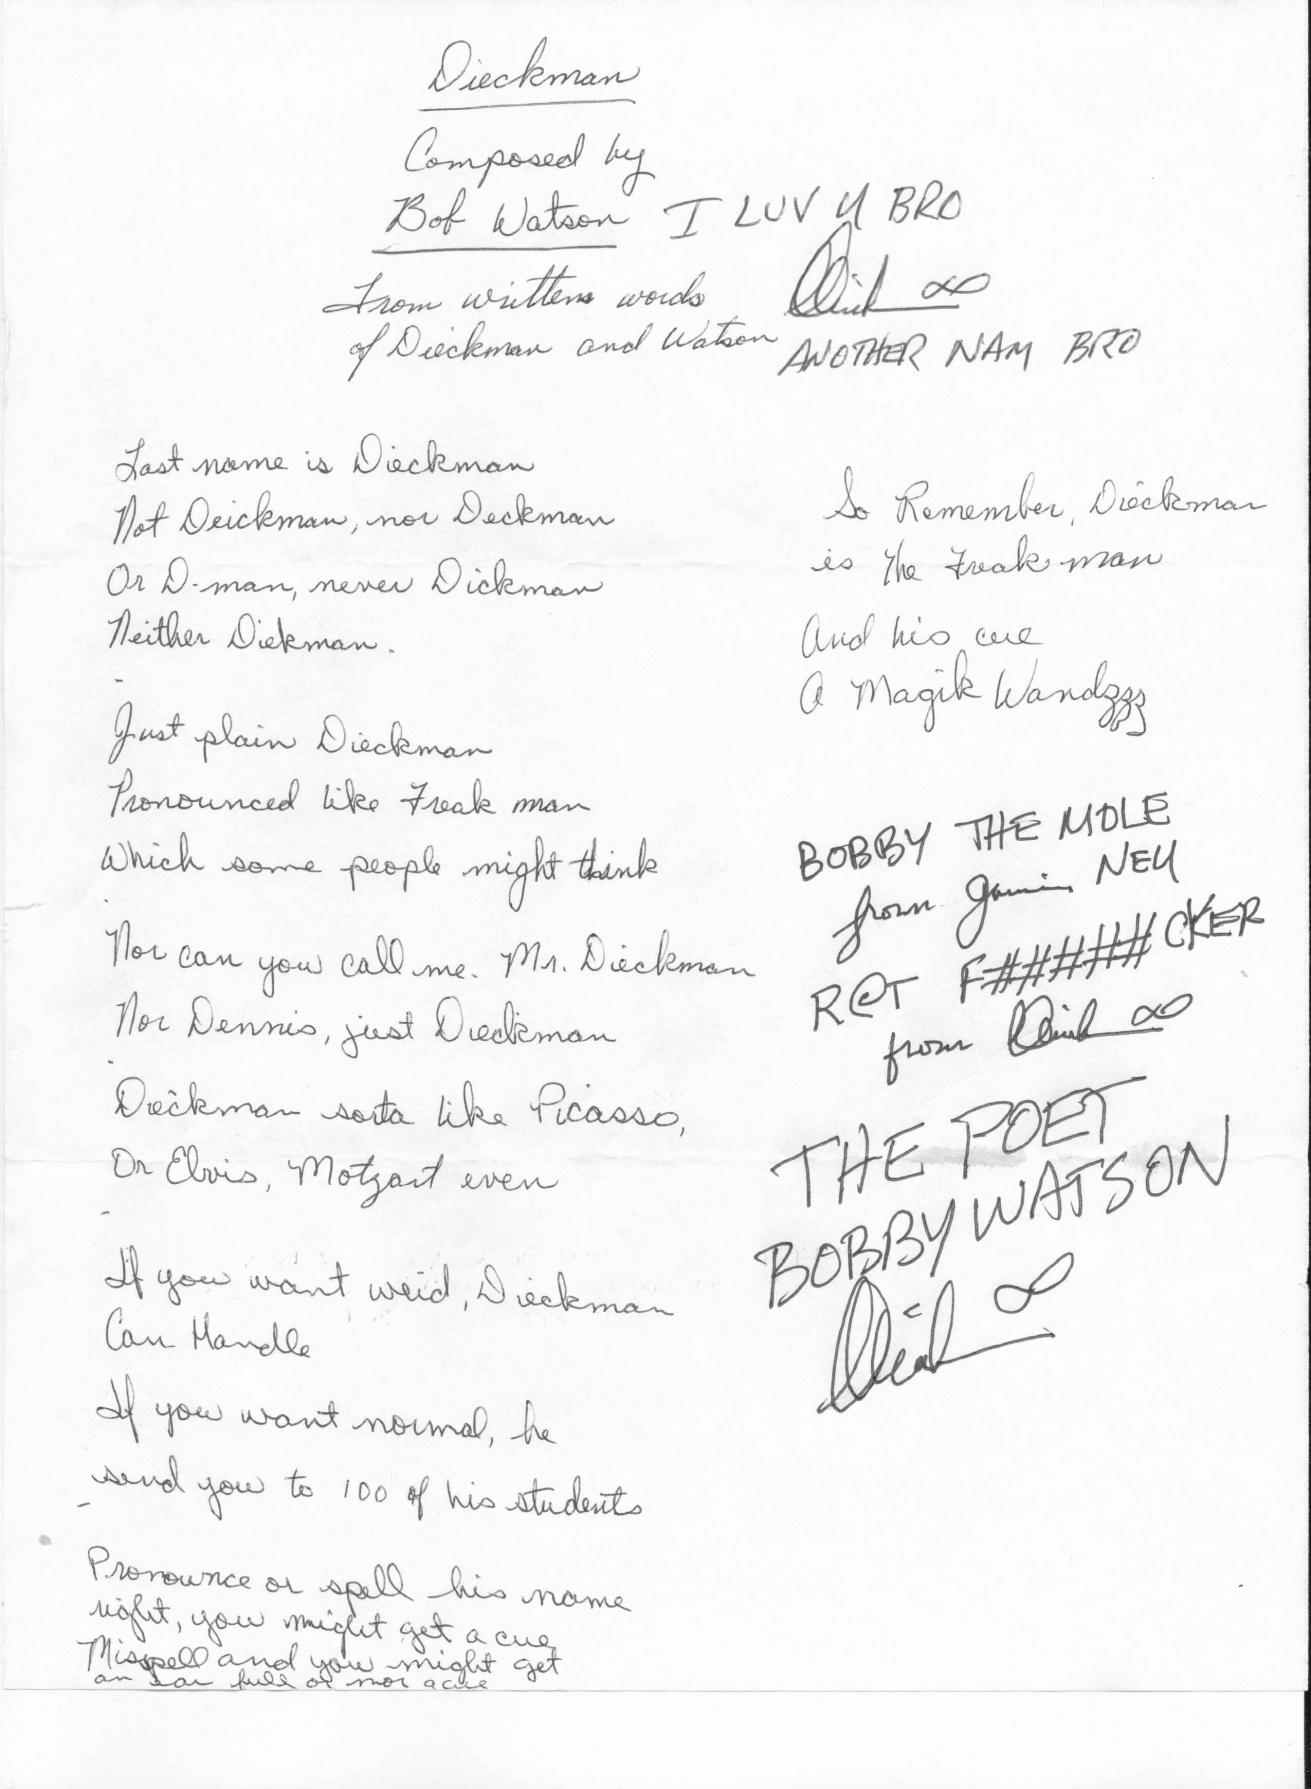 Dieckman
Composed by
Bob Watson I LUV U BRO
From written words
of Dieckman and Watson
ANOTHER NAM BRO
Last name is Dieckman
Not Deickman, nor Deckman
Or D-man, never Dickman
Neither Diekman.
Just plain Dieckman
Pronounced like Freak man
Which some people might think
Nor can you call me. Mr. Dieckman
Nor Dennis, just Dieckman
Dieckman sorta like Picasso,
Or Elvis, Motzart even
If you want weid, Dieckman
Can Handle
If you want normal, he
send you to 100 of his students
Pronounce or spell his name
right, you might get a cue
Misspell and you might get
an ear full or nor a cue
So Remember, Dieckman
is the Freak man
And his cue
A Magik Wandzzz
BOBBY THE MOLE
from NEU
R@T F######CKER
from
THE POET
BOBBY WATSON